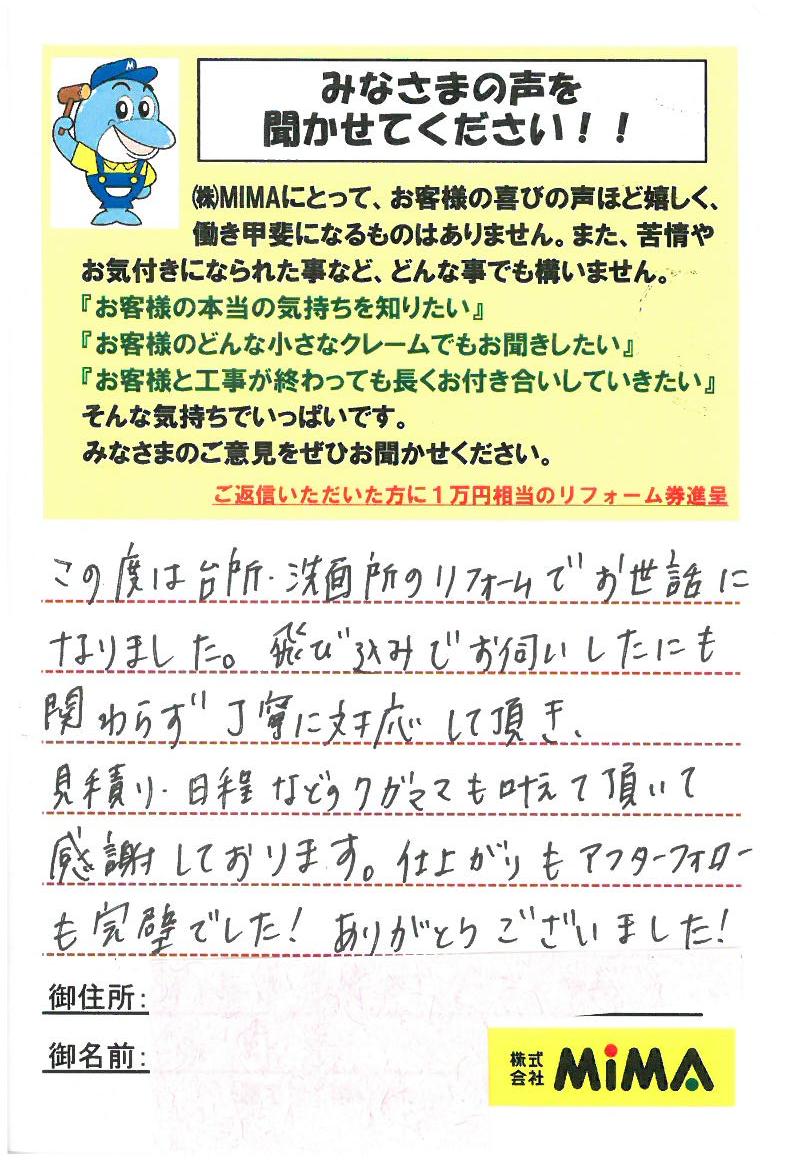 みなさまの声を
聞かせてください！！
㈱MIMAにとって、お客様の喜びの声ほど嬉しく、
働き甲斐になるものはありません。また、苦情や
お気付きになられた事など、どんな事でも構いません。
『お客様の本当の気持ちを知りたい』
『お客様のどんな小さなクレームでもお聞きしたい』
『お客様と工事が終わっても長くお付き合いしていきたい』
そんな気持ちでいっぱいです。
みなさまのご意見をぜひお聞かせください。
ご返信いただいた方に１万円相当のリフォーム券進呈
この度は台所・洗面所のリフォームでお世話に
なりました。飛び込みでお伺いしたにも
関わらず丁寧に対応して頂き、
見積り・日程などのワガママも叶えて頂いて
感謝しております。仕上がりもアフターフォロー
も完璧でした！ありがとうございました！
御住所：
御名前：
株式
会社 MiMA
M